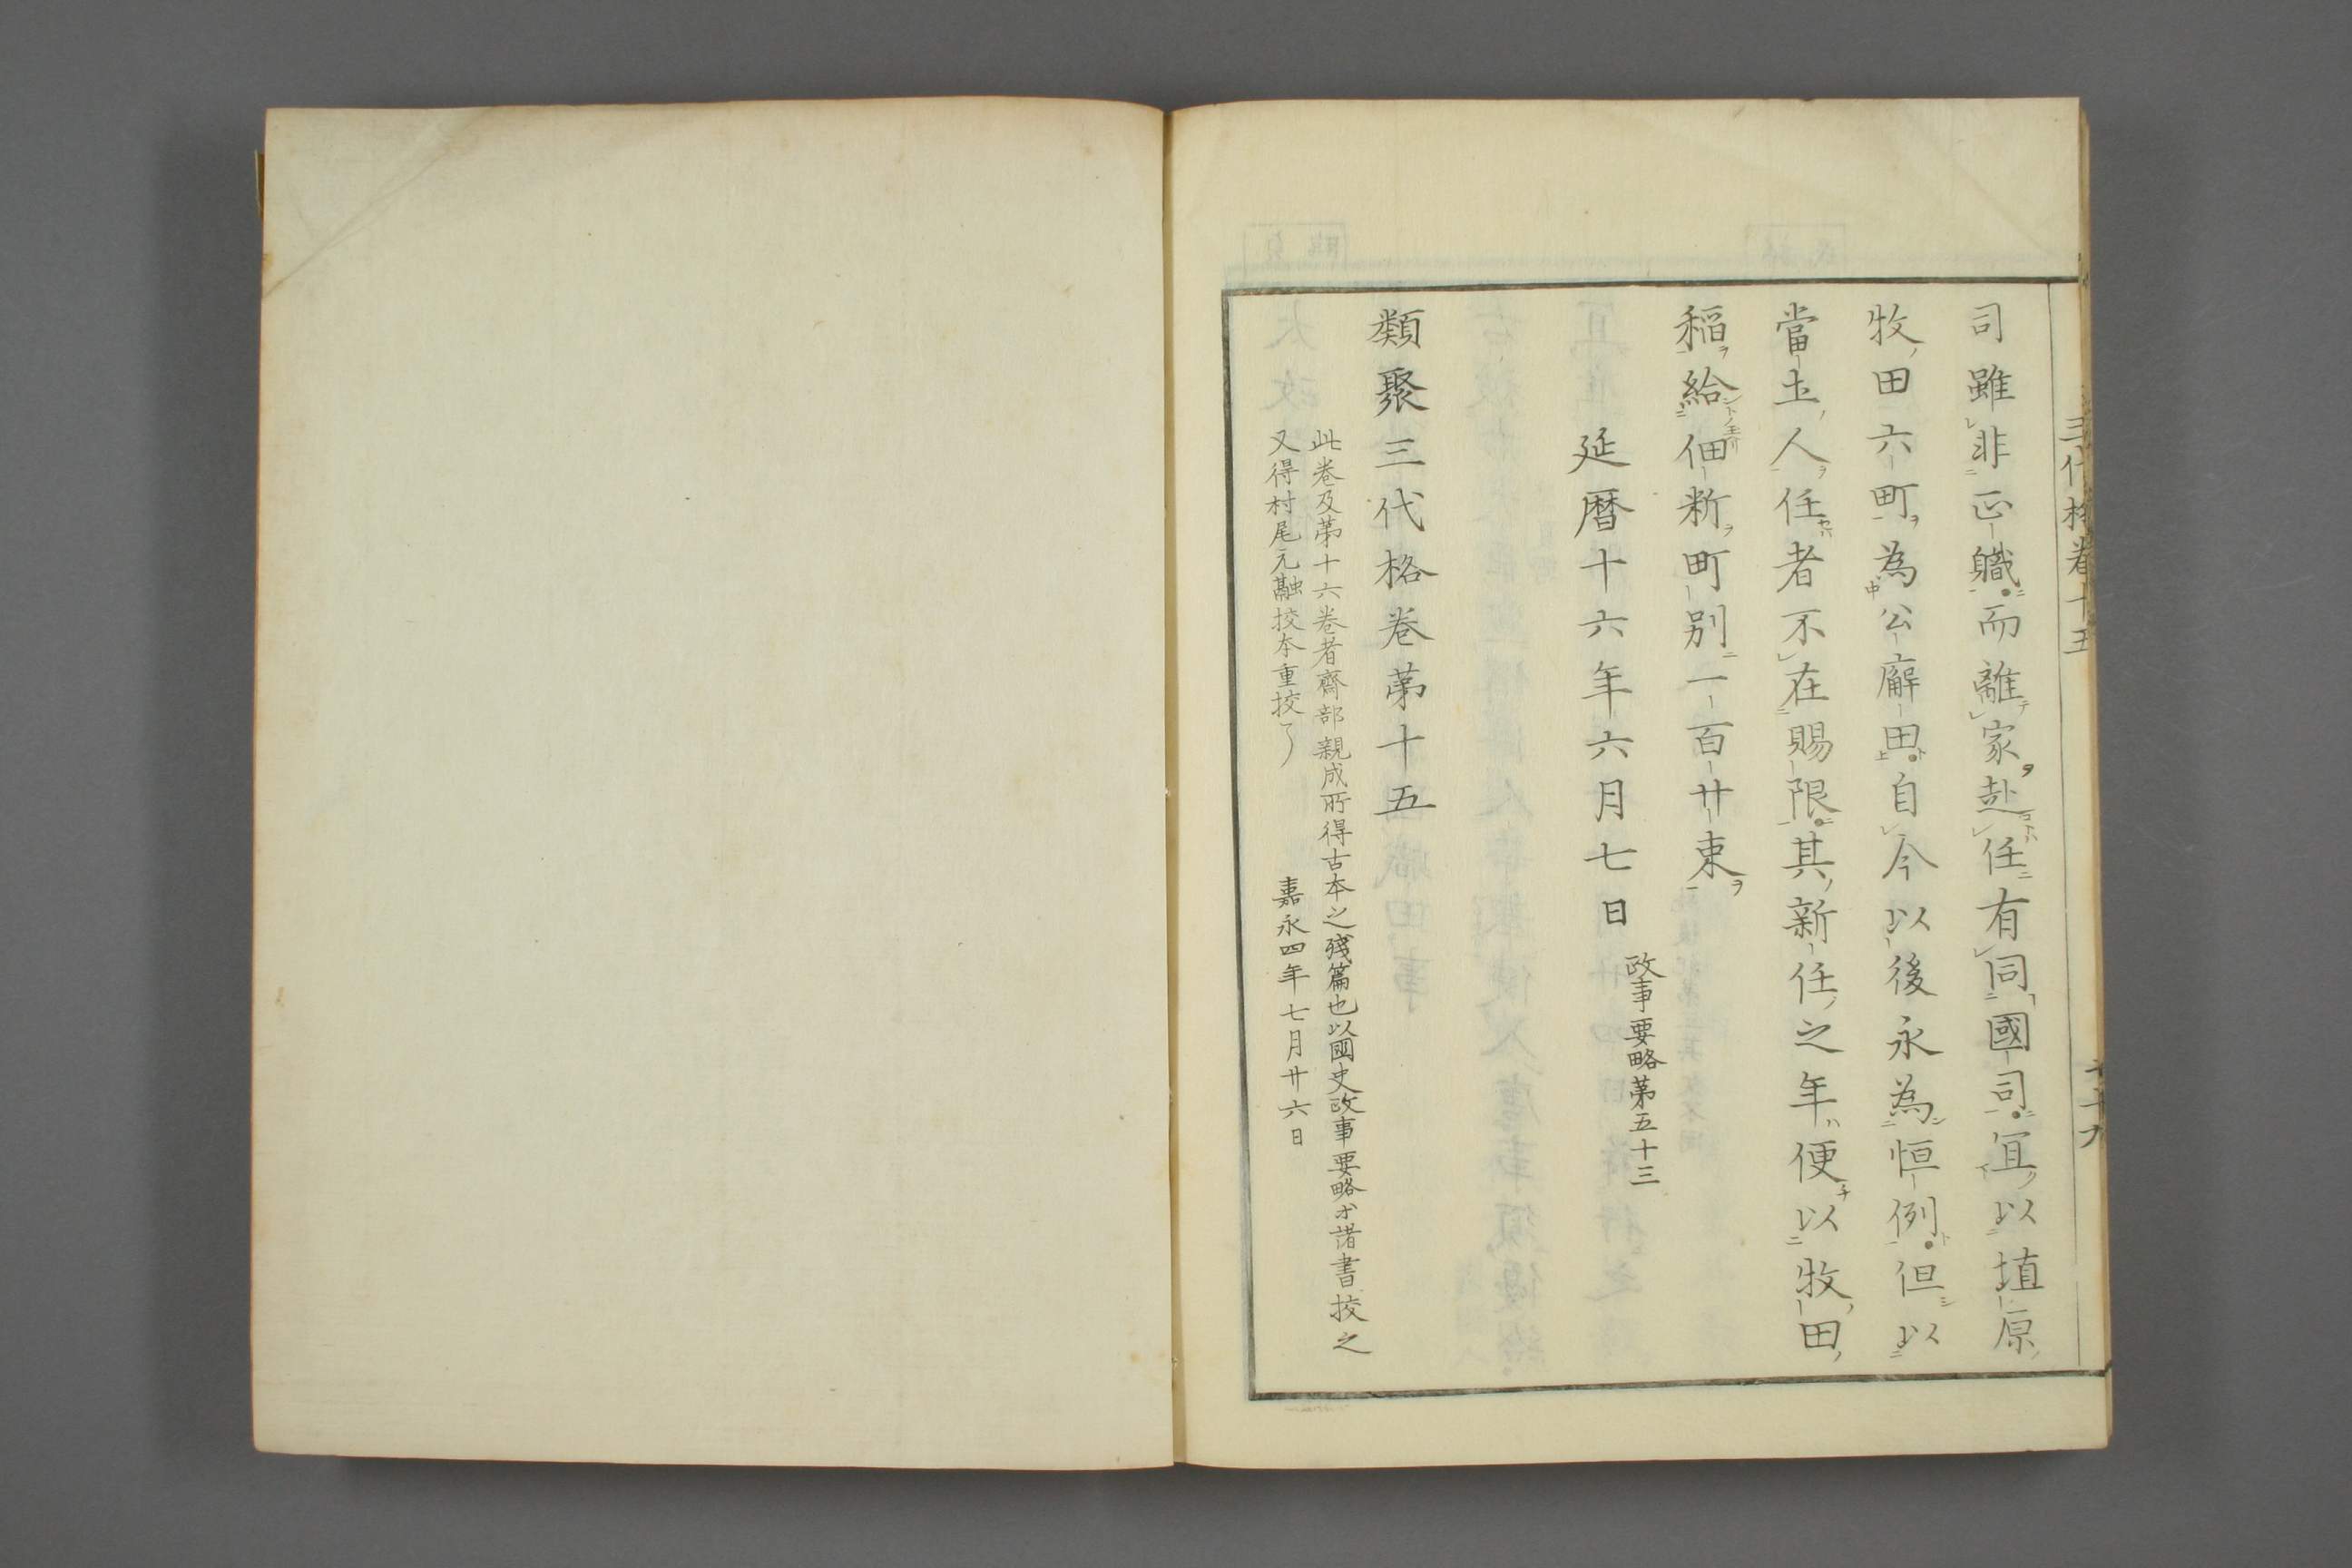 三代格卷十五
司雖非正職而離家赴任有同國司宜以埴原
牧田六町為公廨田自今以後永為恒例但以
當土人任者不在賜限其新任之年便以牧田
稲給佃䉼町別一百廿束
延暦十六年六月七日
政事要略第五十三
類聚三代格卷第十五
此卷及第十六卷者齋部親成所得古本之残篇也以國史政事要略等諸書挍之
又得村尾元融挍本重挍了
嘉永四年七月廿六日